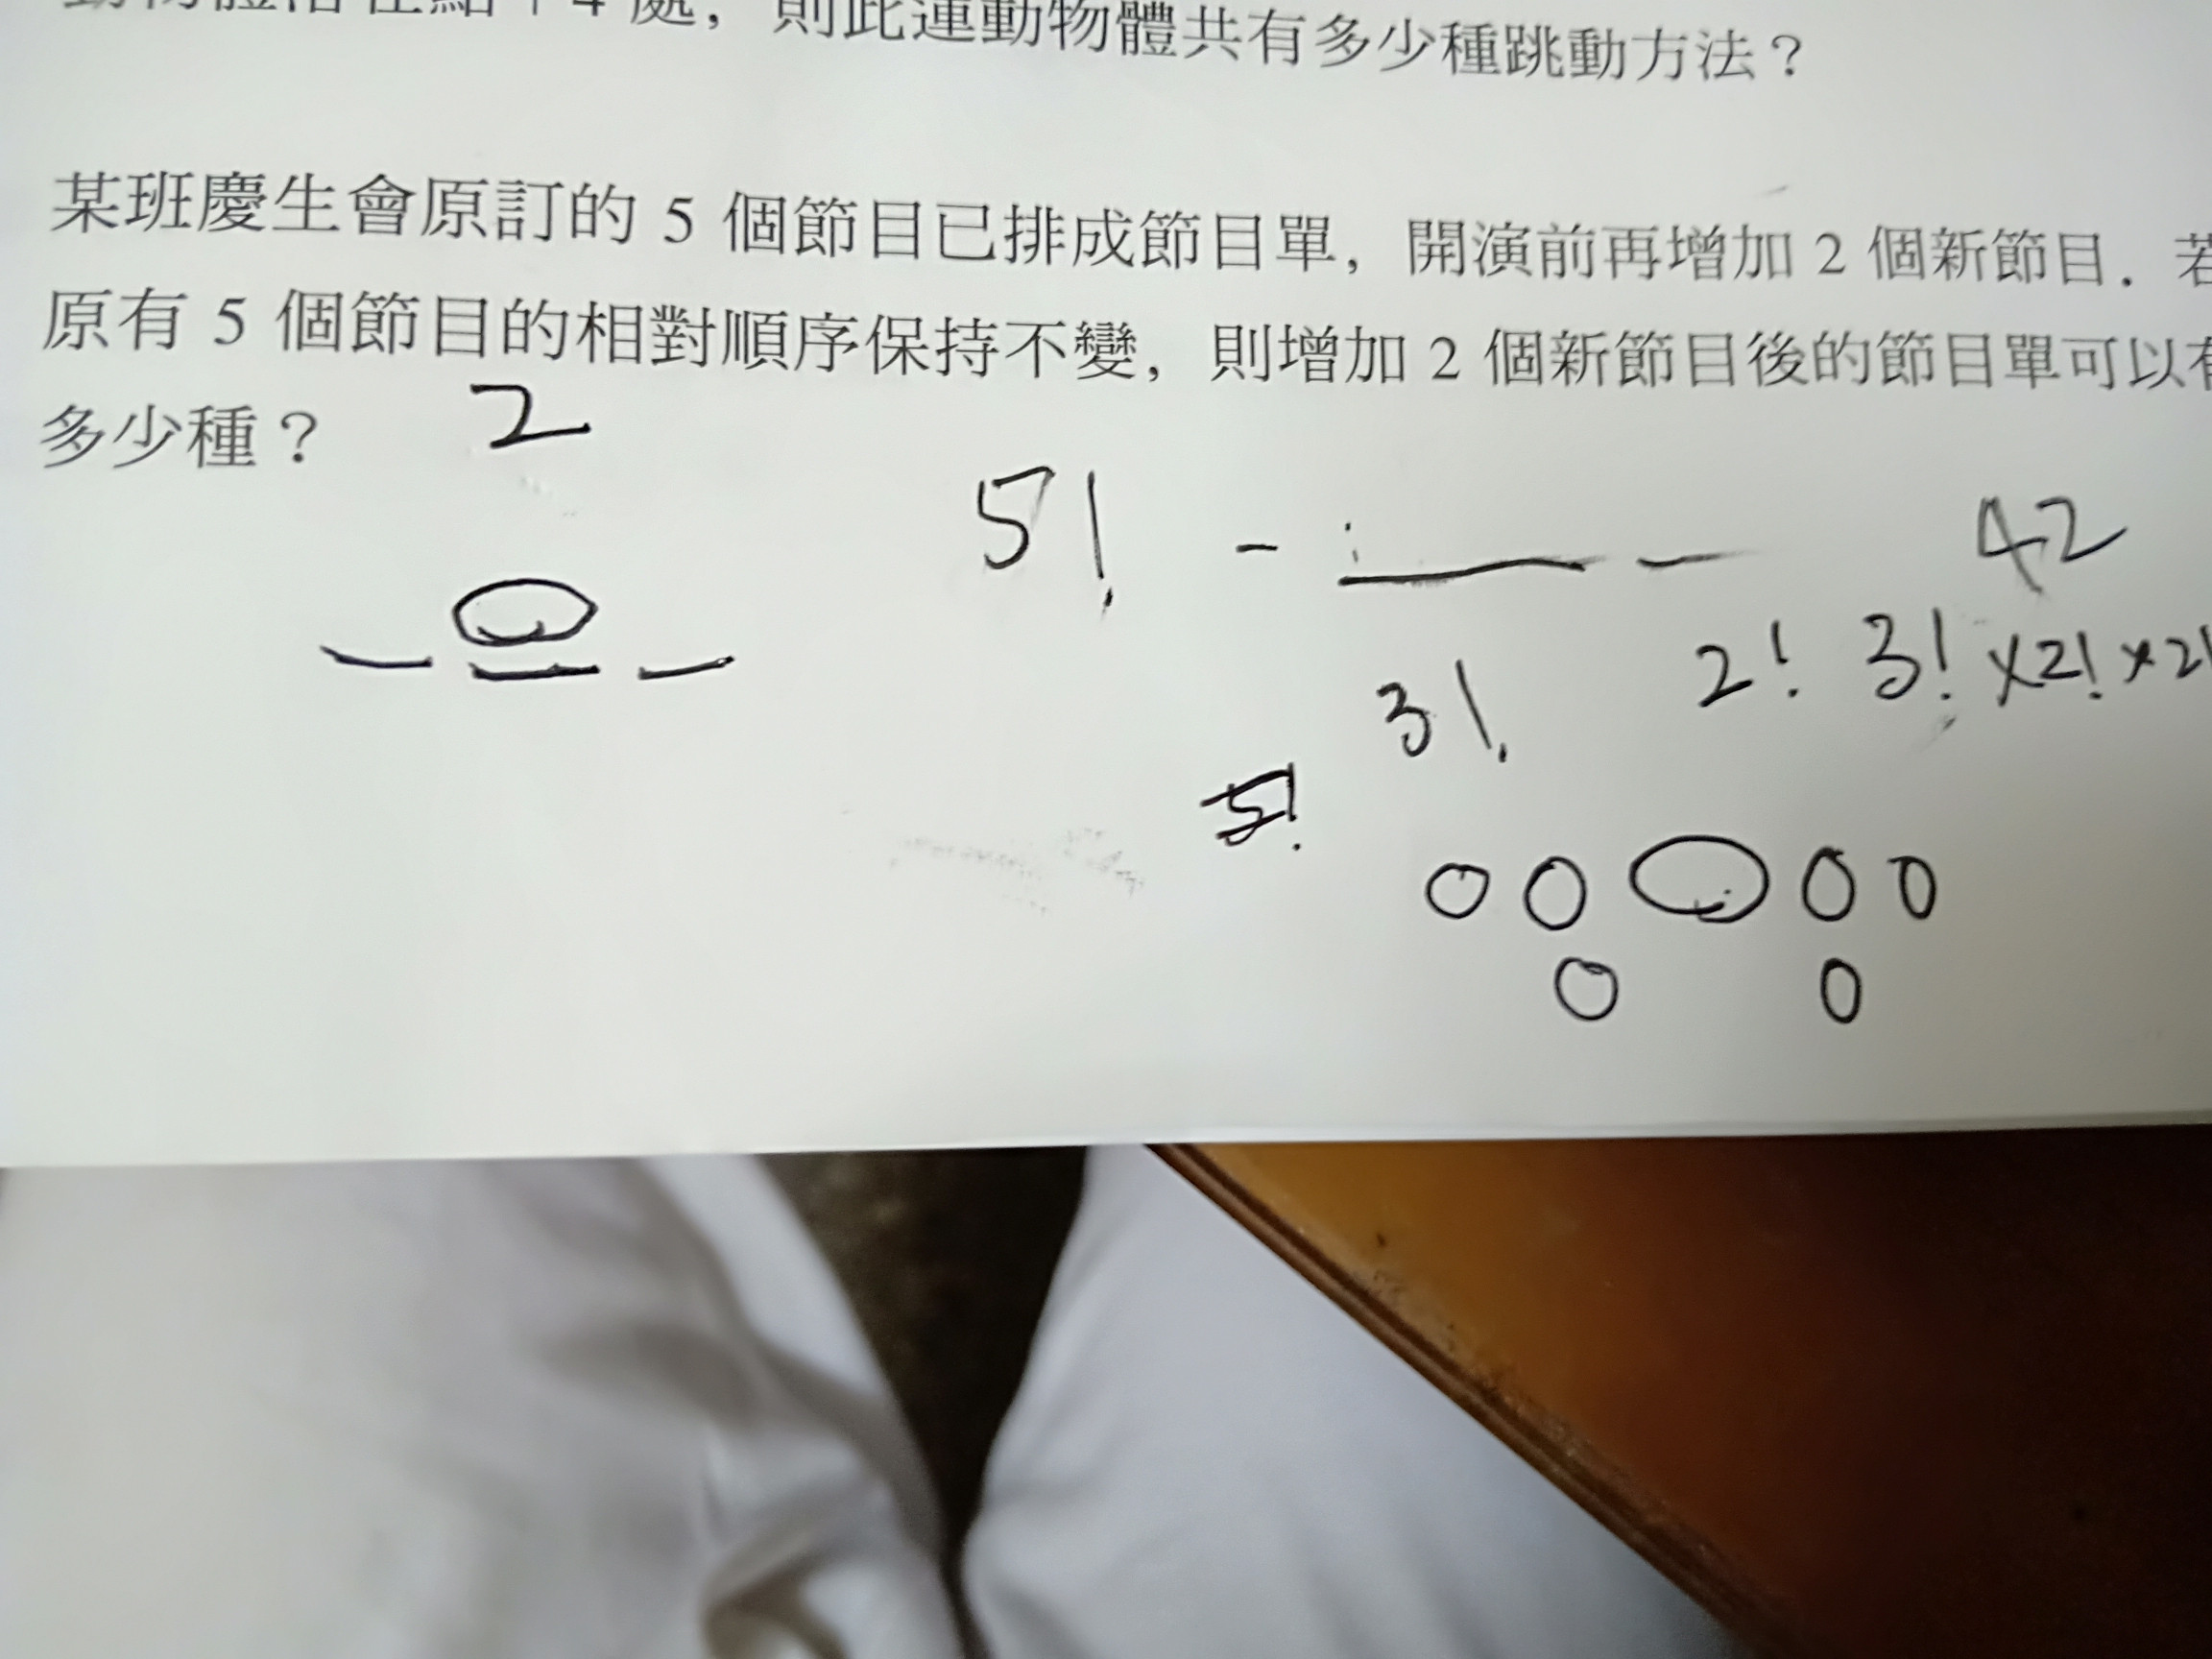 處，則此運動物體共有多少種跳動方法？
某班慶生會原訂的 5 個節目已排成節目單，開演前再增加 2 個新節目．若
原有 5 個節目的相對順序保持不變，則增加 2 個新節目後的節目單可以有
多少種？
2
5!
42
3!
2! 3! ×2! ×2!
5!